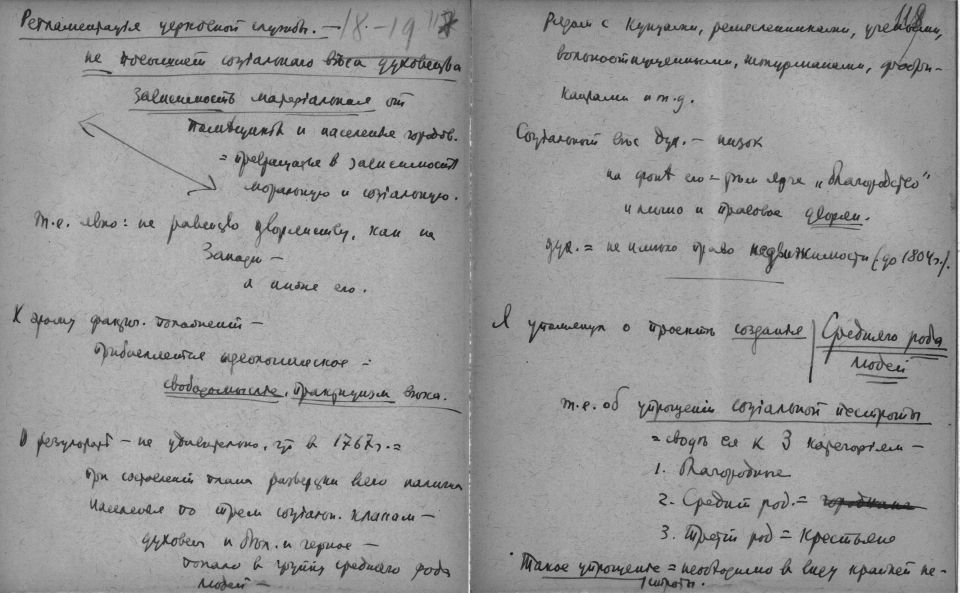 Регламентація церковной службы. — 18–19 117
не повысившей соціальнаго вѣса духовенства
Зависимость матеріальная от
помѣщиков и населенія городов.
= превращатся в зависимость
моральную и соціальную.
Т.е. явно: не равенство дворянству, как на
Западѣ —
а ниже его.
К этому фактич. положенію —
прибавляется идеологическое =
свободомысліе, практицизм вѣка.
В результатѣ — не удивительно, что в 1767 г. =
при составленіи плана разверстки всего наличн
населенія по трем соціальн. классам —
духовен и бѣл. и черное —
попало в группу средняго рода
людей —
Рядом с купцами, ремесленниками, учеными, 118
вольноотпущенными, , фабри-
кантами и т.д.
Соціальный вѣс дух. — низок
на фонѣ его = рѣзче ярче „благородство"
и лично и правовое дворян.
дух. = не имѣло право недвижимости (до 1804 г.).
Я упомянул о проектѣ созданія Средняго рода
людей
т.е. об упрощеніи соціальной пестроты
= сводя ея к 3 категоріям —
1. Благородные
2. Средній род =
3. Третій род = Крестьяне
Такое упрощеніе = необходимо в виду крайней пе-
строты.